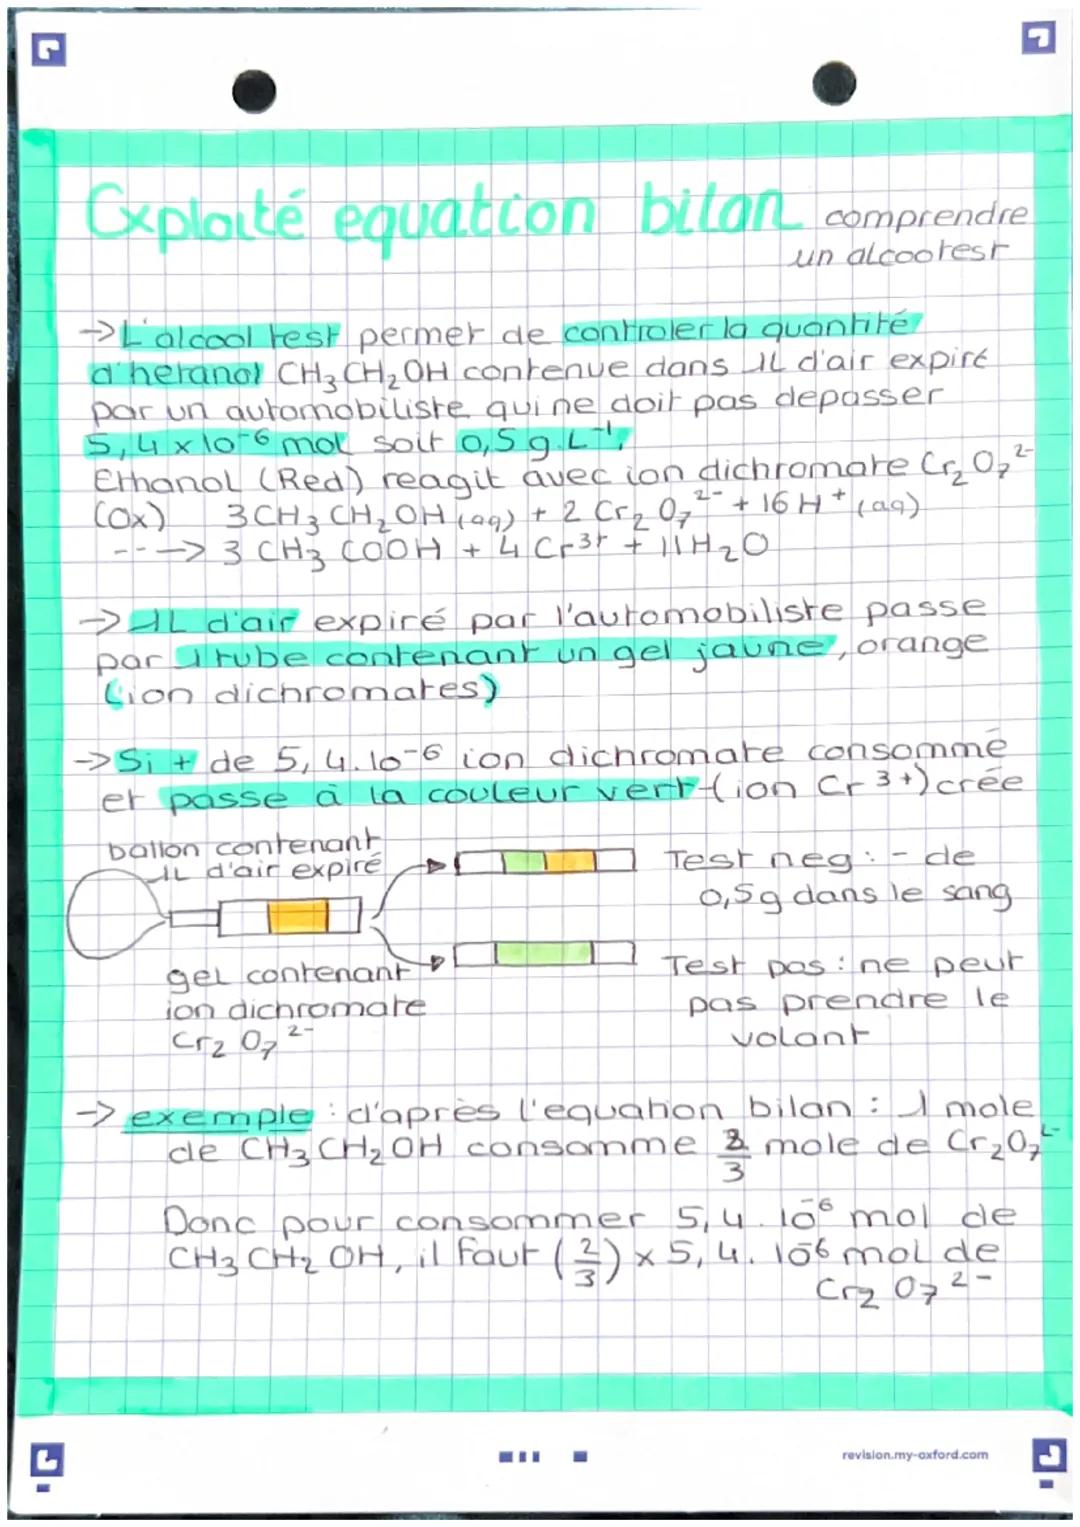 Exploité equation bilan comprendre
un alcootest
→ L'alcool test permet de controler la quantité
d'hetanol CH3CH2OH contenue dans 1L d'air expiré
par un automobiliste qui ne doit pas depasser
5,4 x 10⁻⁶ mol soit 0,5 g.L⁻¹.
Ethanol (Red) reagit avec ion dichromate Cr₂O₇²⁻
(Ox) 3CH₃CH₂OH (aq) + 2 Cr₂O₇²⁻ + 16 H⁺ (aq)
---> 3 CH₃COOH + 4 Cr³⁺ + 11H₂O
→ 1L d'air expiré par l'automobiliste passe
par 1 tube contenant un gel jaune, orange
(ion dichromates)
→ Si + de 5,4.10⁻⁶ ion dichromate consommé
et passe à la couleur vert (ion Cr³⁺) crée
ballon contenant
1L d'air expiré
Test neg : - de
0,5g dans le sang
gel contenant
ion dichromate
Cr₂O₇²⁻
Test pos : ne peut
pas prendre le
volant
→ exemple : d'après l'equation bilan : 1 mole
de CH₃CH₂OH consomme 2/3 mole de Cr₂O₇²⁻
Donc pour consommer 5,4.10⁻⁶ mol de
CH₃CH₂OH, il faut (2/3) x 5,4.10⁻⁶ mol de
Cr₂O₇²⁻
revision.my-oxford.com